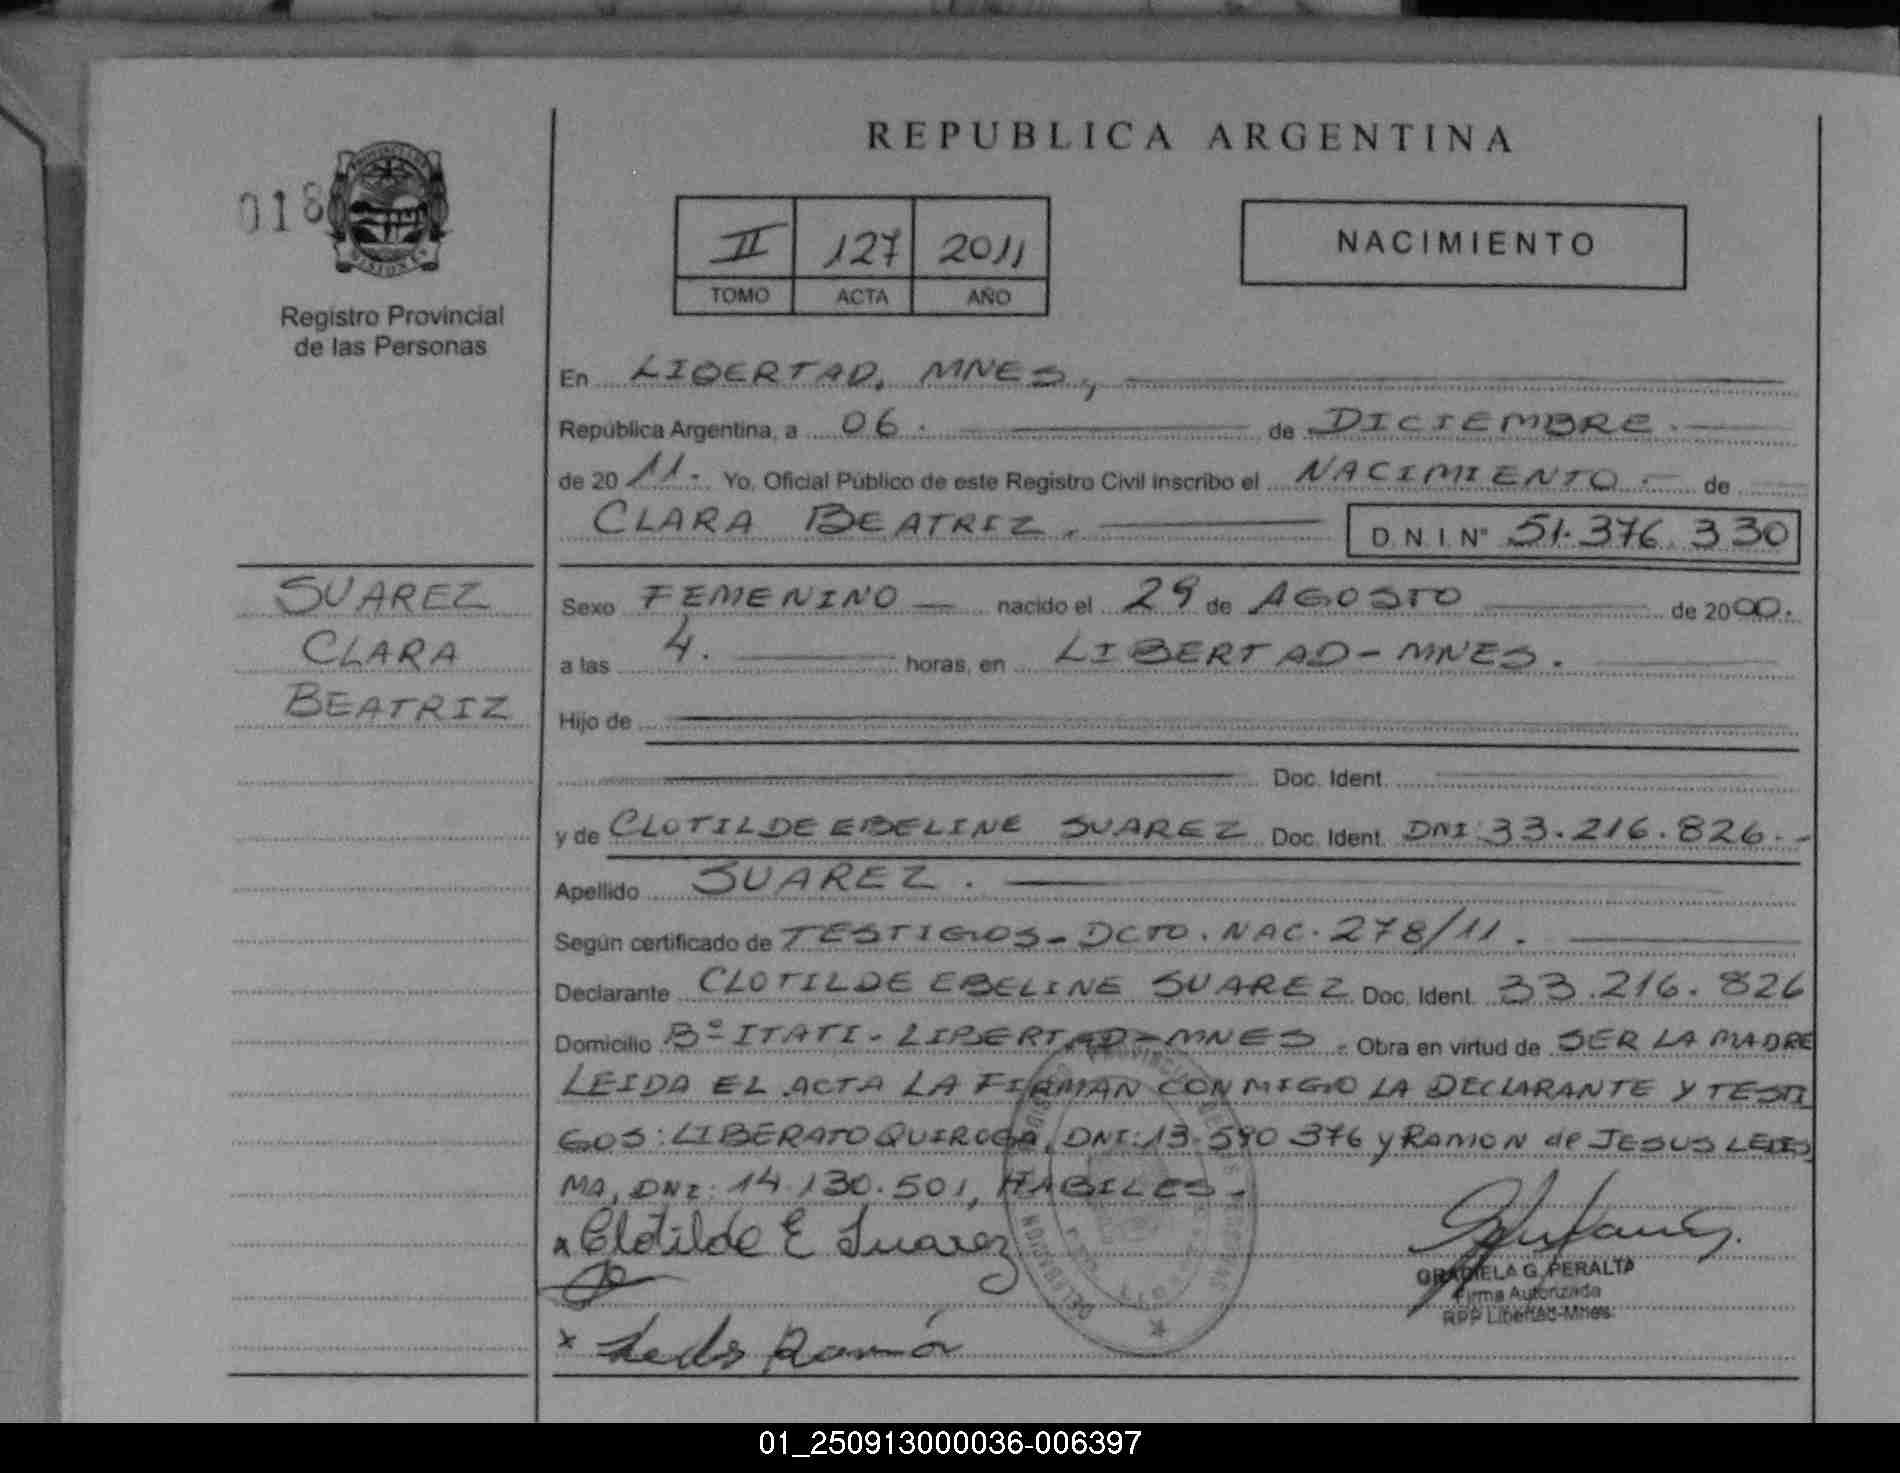 REPUBLICA ARGENTINA
018
MISIONES
Registro Provincial
de las Personas
II 127 2011
TOMO ACTA AÑO
NACIMIENTO
En LIBERTAD, MNES,
República Argentina, a 06. de DICIEMBRE.
de 2011. Yo, Oficial Público de este Registro Civil inscribo el NACIMIENTO.- de
CLARA BEATRIZ. D.N.I. Nº 51.376.330
SUAREZ
CLARA
BEATRIZ
Sexo FEMENINO nacido el 29 de AGOSTO de 2000.
a las 4. horas, en LIBERTAD-MNES.
Hijo de
Doc. Ident.
y de CLOTILDE EBELINE SUAREZ Doc. Ident. DNI:33.216.826.-
Apellido SUAREZ.
Según certificado de TESTIGOS-DCTO. NAC. 278/11.
Declarante CLOTILDE EBELINE SUAREZ Doc. Ident. 33.216.826
Domicilio Bº ITATI-LIBERTAD-MNES. Obra en virtud de SER LA MADRE
LEIDA EL ACTA LA FIRMAN CONMIGO LA DECLARANTE Y TESTI
GOS: LIBERATO QUIROGA, DNI:13.590 376 y RAMON de JESUS LEDES
MA, DNI: 14.130.501, HABILES-
x Clotilde E Suarez
GRACIELA G. PERALTA
Firma Autorizada
RPP Libertad-Mnes.
x Ramón
01_250913000036-006397